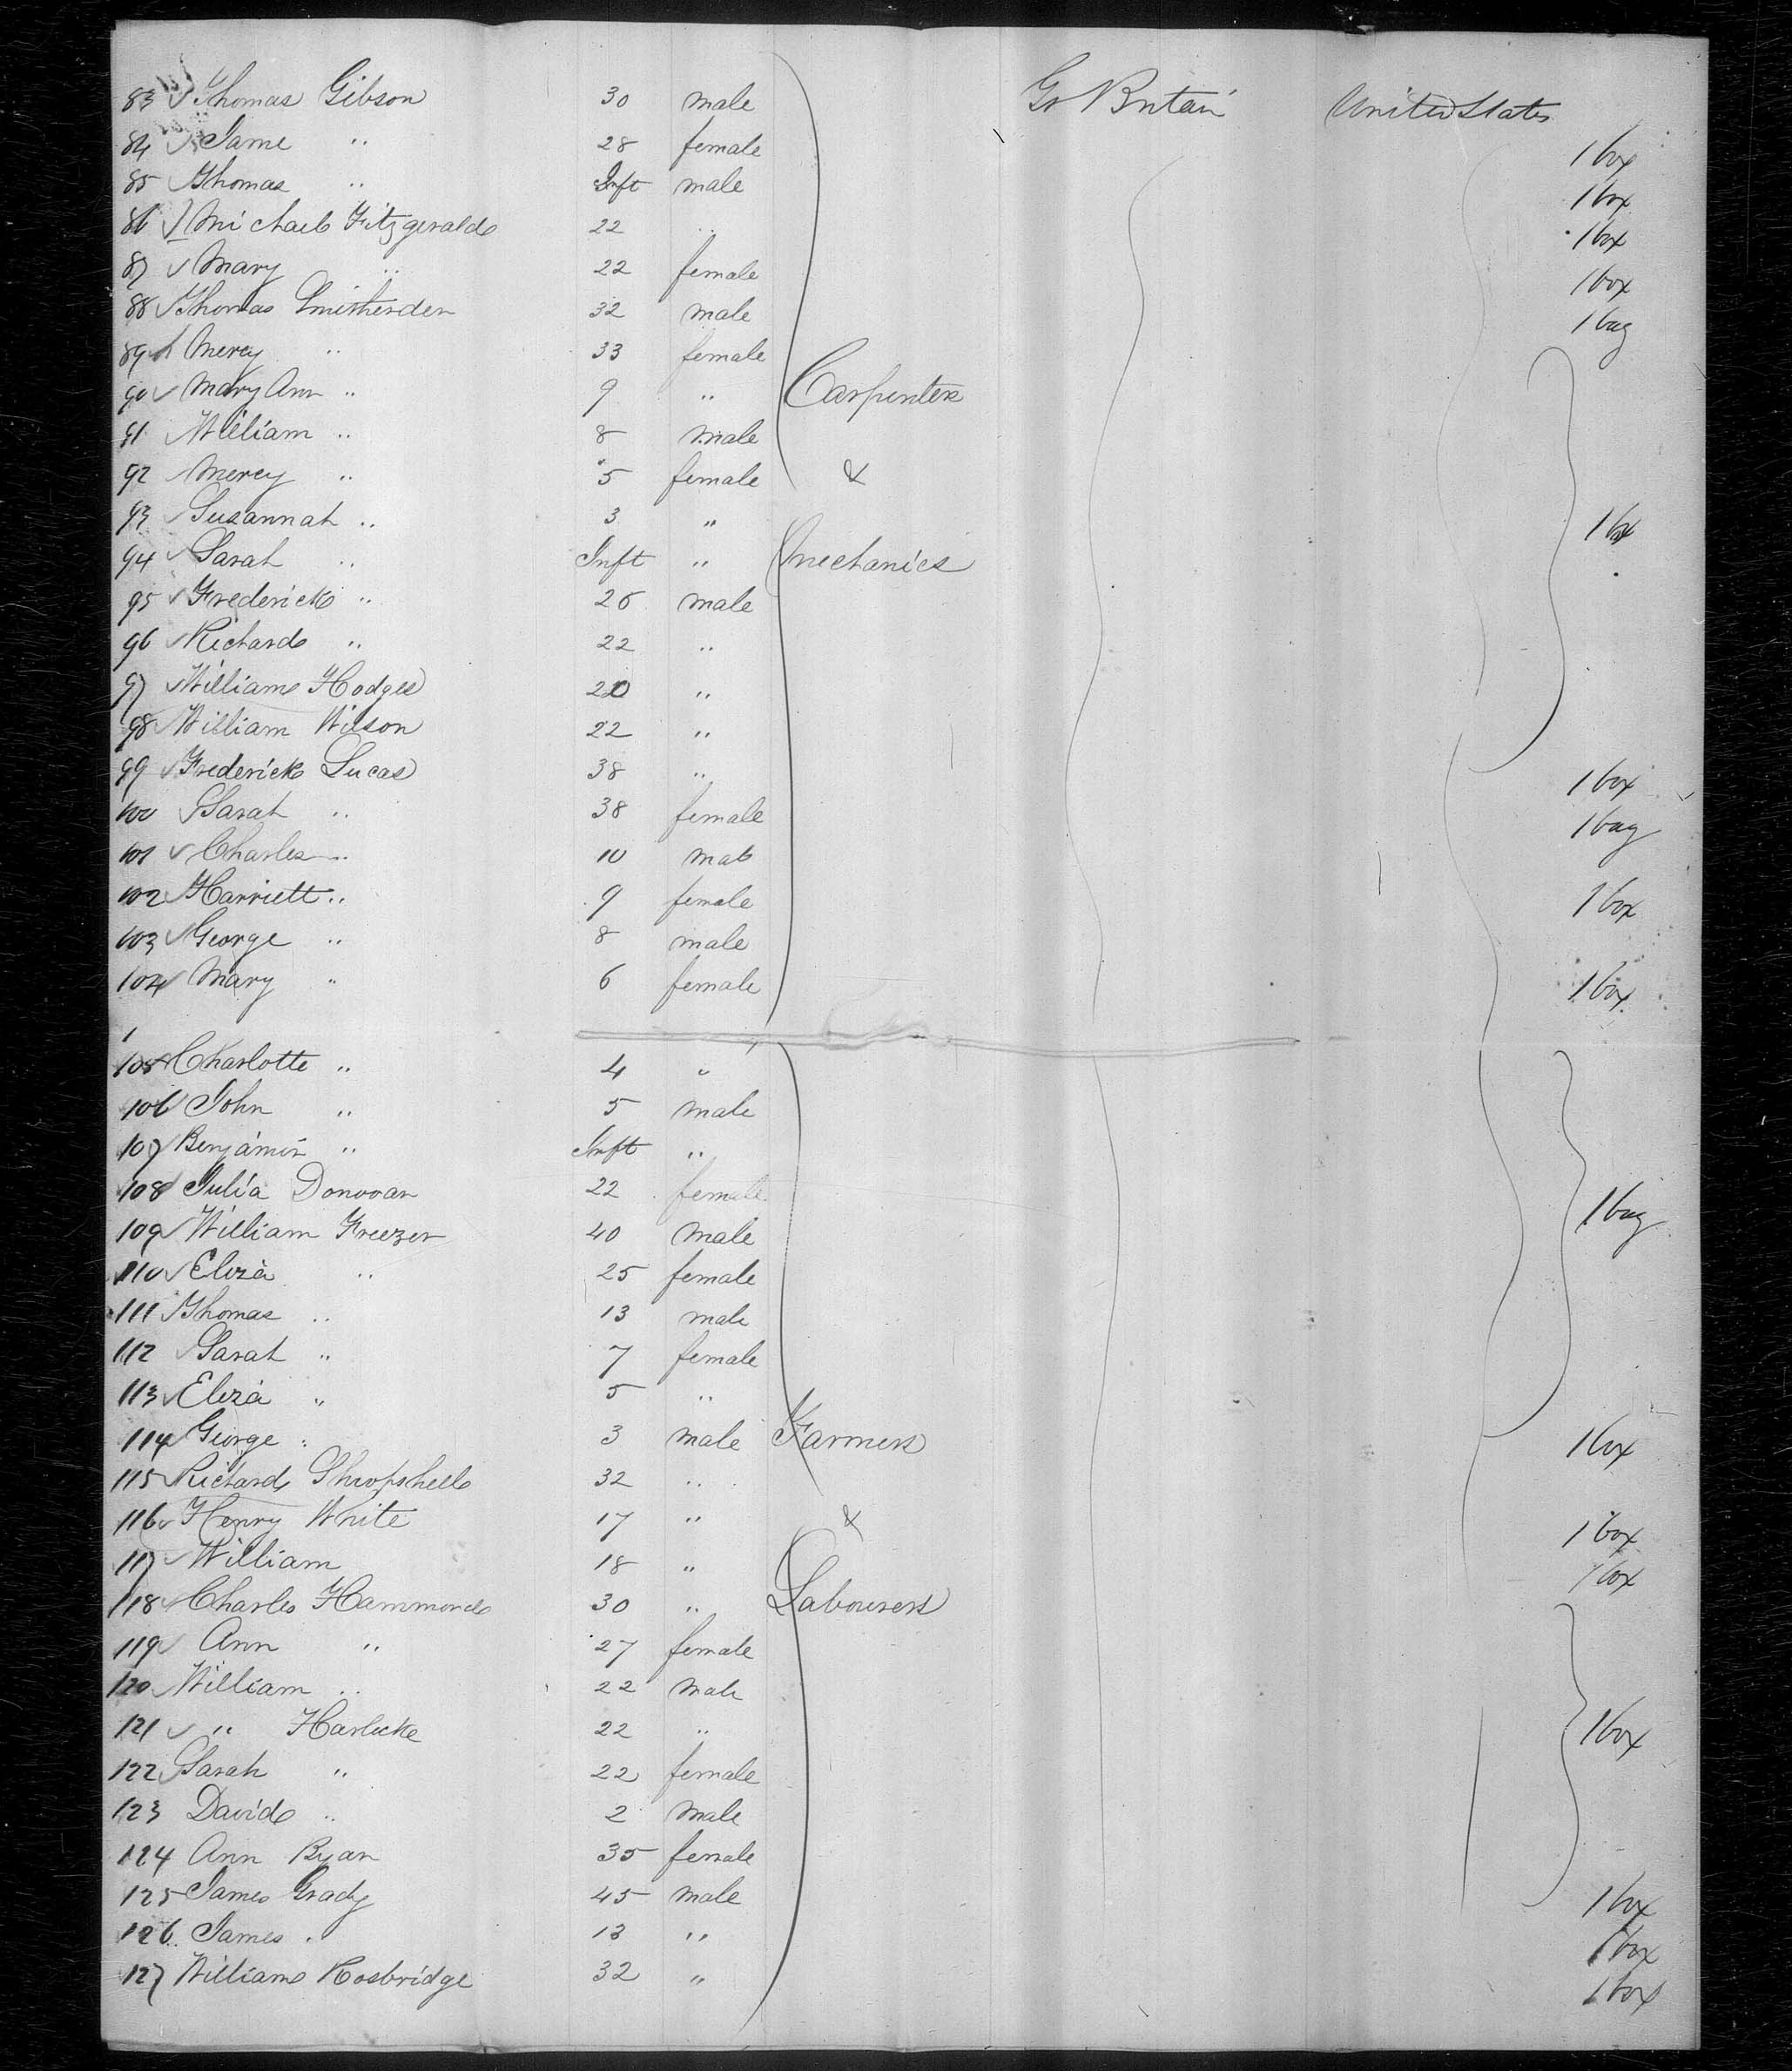 83 Thomas Gibson 30 male Gr Britain United States
84 Jame " 28 female 1 box
85 Thomas " Inft male 1 box
86 Michael Fitzgerald 22 " 1 box
87 Mary " 22 female 1 box
88 Thomas Smitherden 32 male 1 bag
89 Mercy " 33 female
90 Mary Ann " 9 " Carpenters
91 William " 8 male
92 Mercy " 5 female &
93 Susannah " 3 " 1 box
94 Sarah " Inft " Mechanics
95 Frederick " 26 male
96 Richard " 22 "
97 William Hodges 20 "
98 William Wilson 22 "
99 Frederick Lucas 38 " 1 box
100 Sarah " 38 female 1 bag
101 Charles " 10 male
102 Harriett " 9 female 1 box
103 George " 8 male
104 Mary " 6 female 1 box
105 Charlotte " 4 "
106 John " 5 male
107 Benjamin " Inft "
108 Julia Donovan 22 female 1 bag
109 William Freezer 40 male
110 Eliza " 25 female
111 Thomas " 13 male
112 Sarah " 7 female
113 Eliza " 5 "
114 George " 3 male Farmers 1 box
115 Richard Shropshell 32 "
116 Henry White 17 " & 1 box
117 William 18 " 1 box
118 Charles Hammond 30 " Labourers
119 Ann " 27 female
120 William " 22 male
121 " Harlicke 22 " 1 box
122 Sarah " 22 female
123 David " 2 male
124 Ann Ryan 35 female
125 James Grady 45 male 1 box
126 James " 13 " 1 box
127 William Rosbridge 32 " 1 box